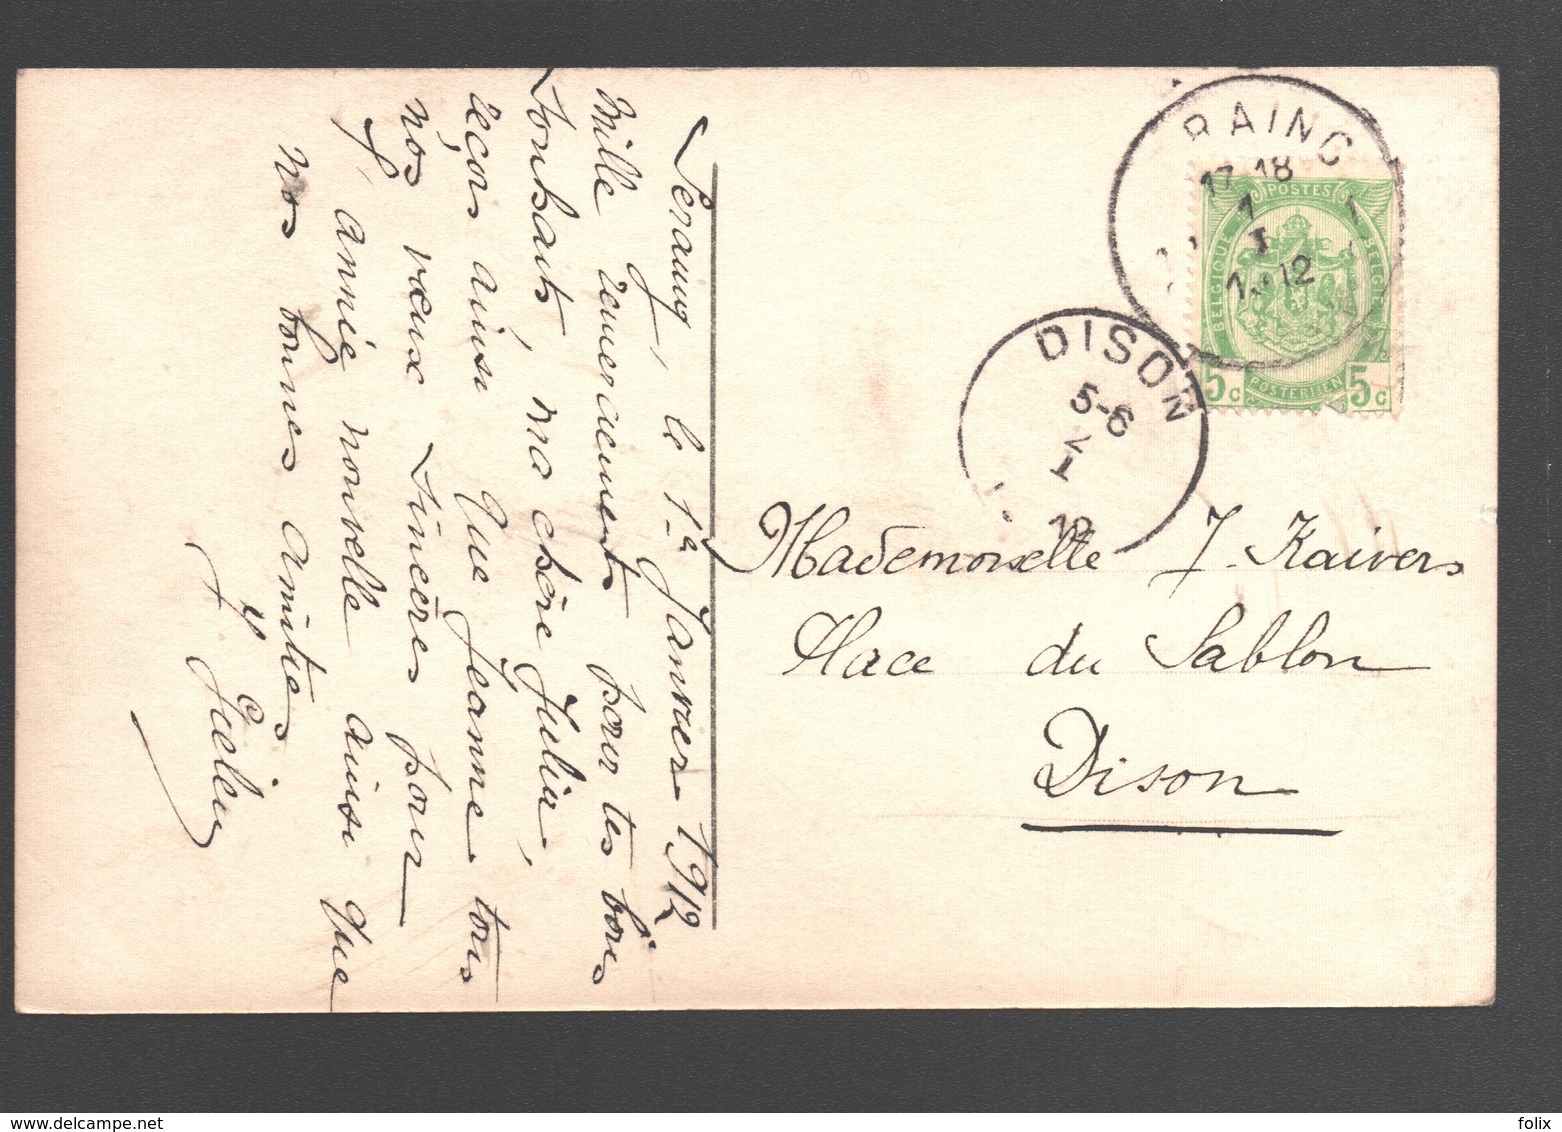 Seraing, le 1er Janvier 1912
Mille remerciements pour tes bons
souhaits, ma chère Julia,
reçois ainsi que Jeanne tous
nos vœux sincères pour
l'année nouvelle ainsi que
nos bonnes amitiés
RAING
17-18
1
I
12
POSTES
BELGIQUE
BELGIË
5c POSTERIJEN 5c
DISON
5-6
I
12
Mademoiselle J. Kaivers
Place du Sablon
Dison
www.delcampe.net
folix